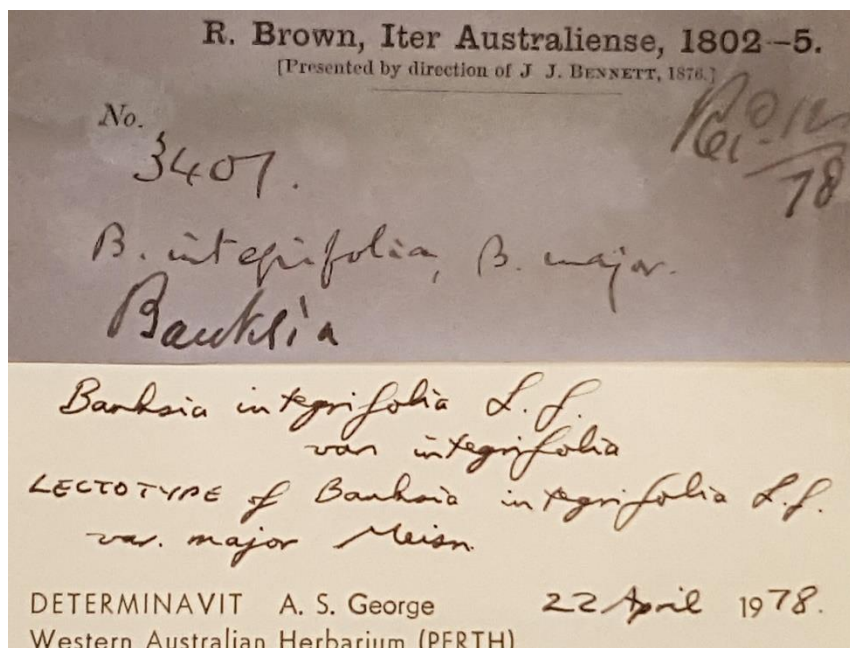 R. Brown, Iter Australiense, 1802–5.
[Presented by direction of J J. BENNETT, 1876.]
No.
3407.
78
B. integrifolia, B. major.
Banksia
Banksia integrifolia L.f.
var integrifolia
LECTOTYPE of Banksia integrifolia L.f.
var. major Meisn.
DETERMINAVIT A. S. George 22 April 1978.
Western Australian Herbarium (PERTH)